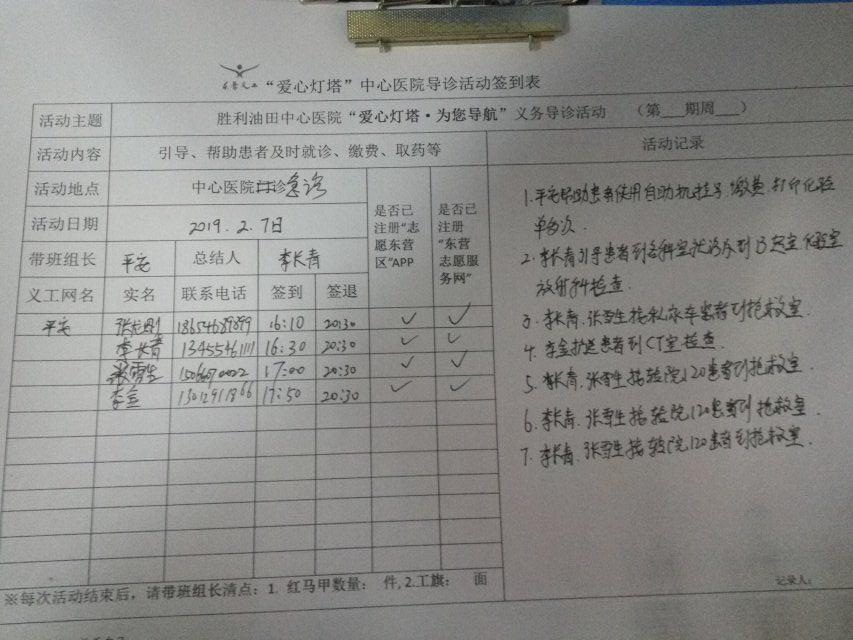 东营义工 “爱心灯塔”中心医院导诊活动签到表
活动主题 胜利油田中心医院“爱心灯塔·为您导航”义务导诊活动 （第___期周___）
活动内容 引导、帮助患者及时就诊、缴费、取药等
活动地点 中心医院 急诊
活动日期 2019.2.7日
带班组长 平安 总结人 李长青
是否已注册“志愿东营区”APP
是否已注册“东营志愿服务网”
义工网名 实名 联系电话 签到 签退
平安 18654689899 16:10 20:30 ✓ ✓
李长青 13455461111 16:30 20:30 ✓ ✓
张雪生 17:00 20:30 ✓ ✓
李金 17:50 20:30 ✓ ✓
※每次活动结束后，请带班组长清点：1. 红马甲数量： 件, 2.工旗： 面
活动记录
1.平安帮助患者使用自助机挂号.缴费.打印化验
单多次.
2.李长青引导患者到各科室就诊 化验室
放射科检查.
3.李长青.张雪生接私家车患者到抢救室.
4.李金护送患者到CT室检查.
5.李长青.张雪生接转院120患者到抢救室.
6.李长青.张雪生接转院120患者到抢救室.
7.李长青.张雪生接转院120患者到抢救室.
记录人: